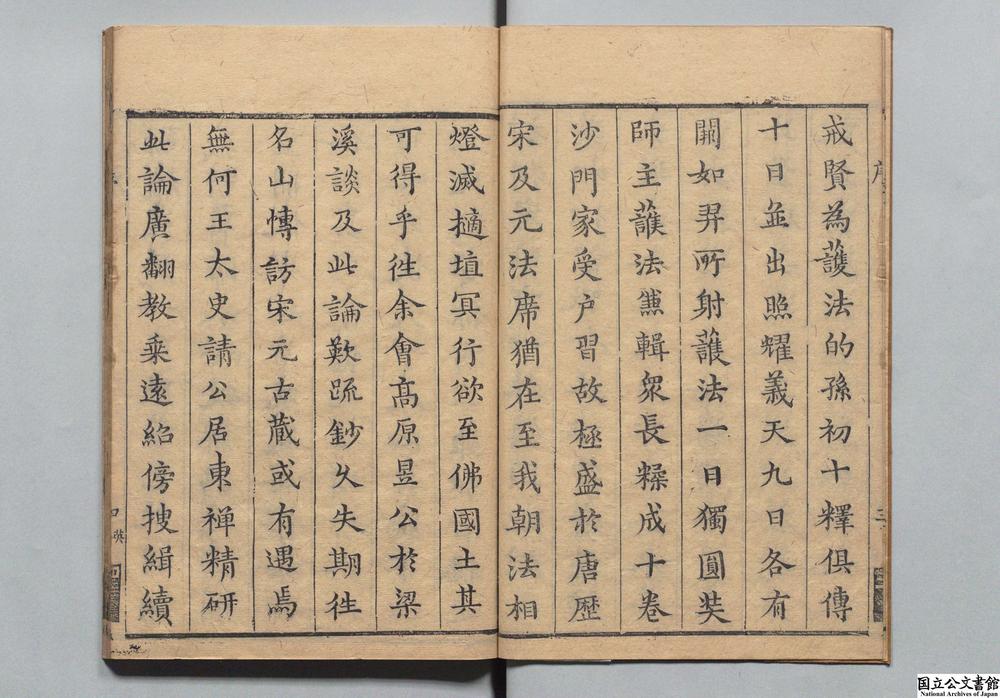 戒賢為護法的孫初十釋俱傳
十日並出照耀義天九日各有
闕如羿所射護法一日獨圓奘
師主護法兼輯衆長糅成十卷
沙門家受戶習故極盛於唐歷
宋及元法席猶在至我朝法相
燈滅擿埴冥行欲至佛國土其
可得乎往余會高原昱公於梁
溪談及此論歎疏鈔久失期往
名山博訪宋元古藏或有遇焉
無何王太史請公居東禅精研
此論廣翻教乘遠紹傍搜緝續
序
三
国立公文書館
National Archives of Japan